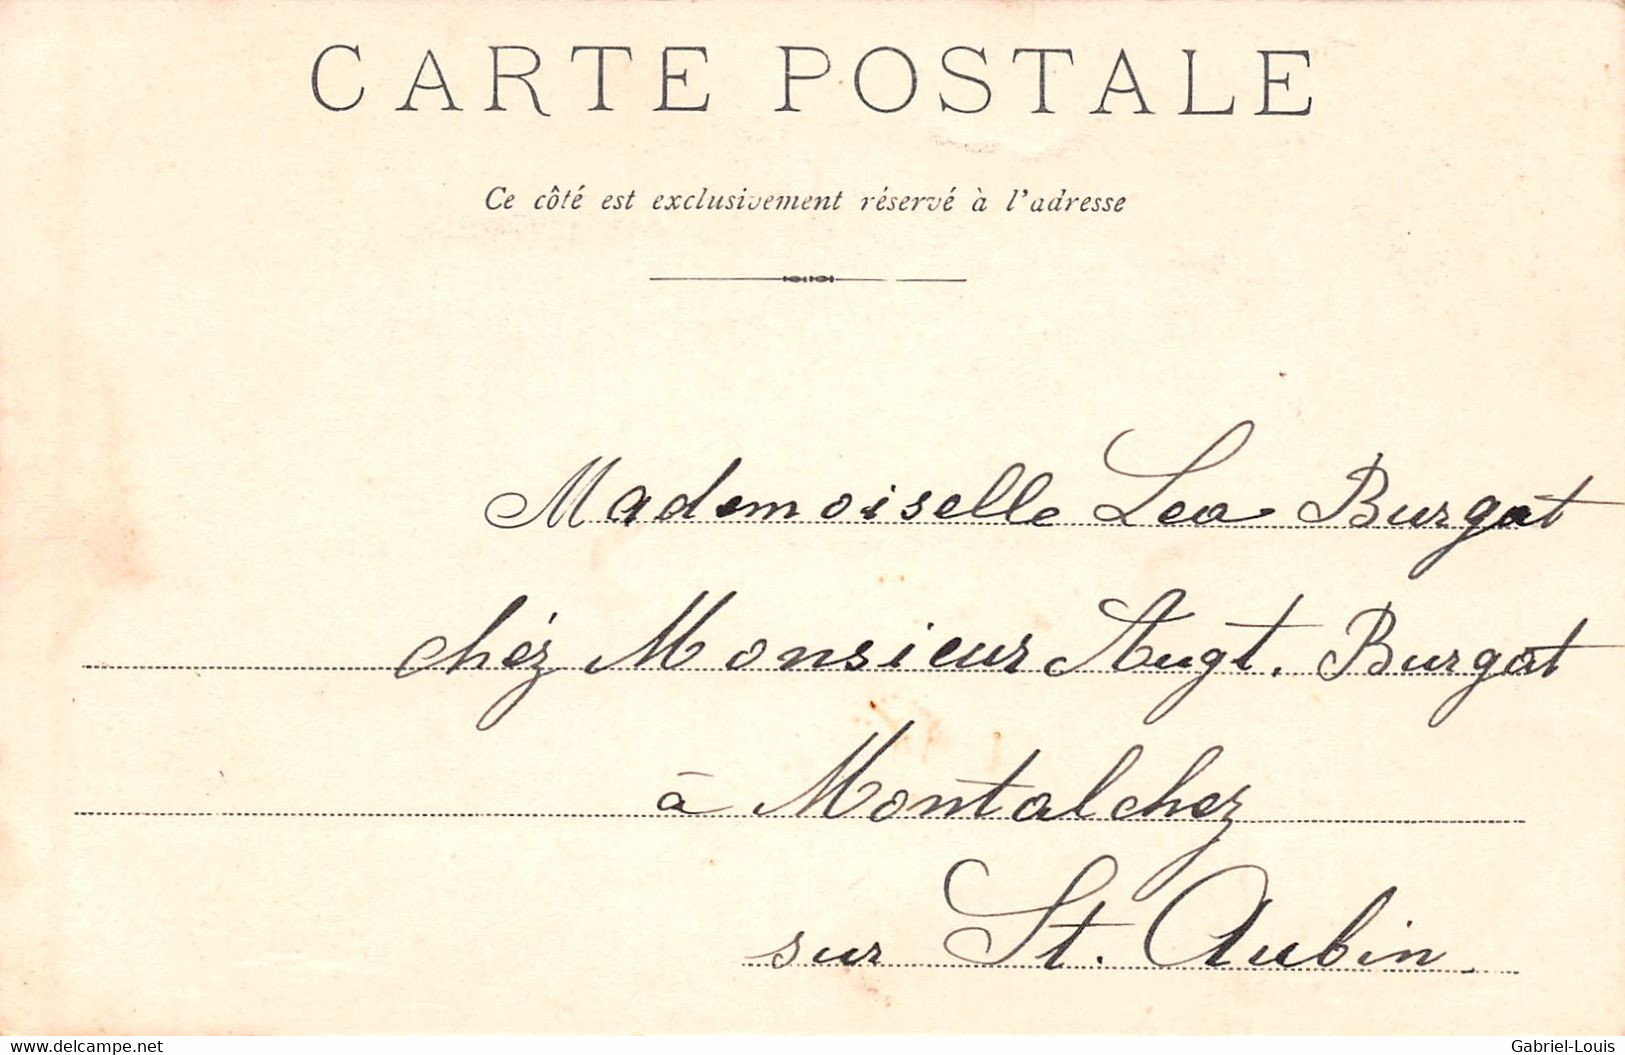 CARTE POSTALE
Ce côté est exclusivement réservé à l'adresse
Mademoiselle Lea Burgat
chéz Monsieur Augt. Burgat
à Montalchez
sur St. Aubin
www.delcampe.net
Gabriel-Louis